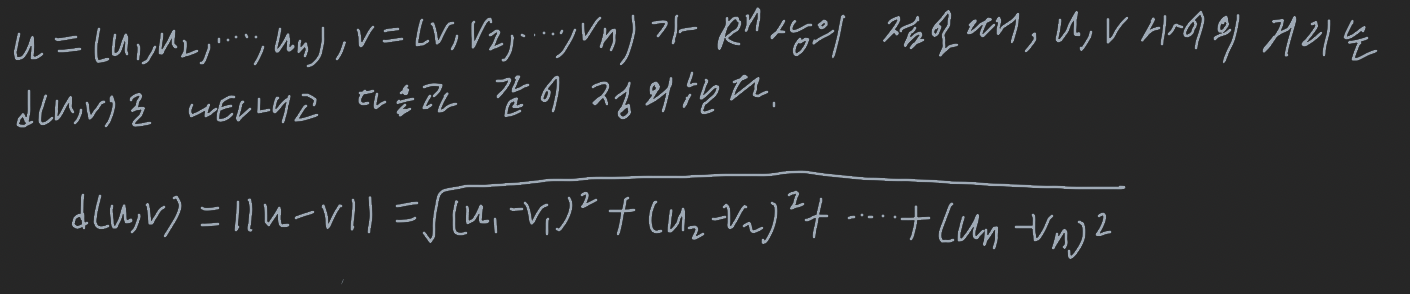 u = (u₁,u₂,⋯⋯,uₙ), v = (v,v₂,⋯⋯,vₙ)가 Rⁿ상의 점일때, u,v 사이의 거리는
d(u,v)로 나타내고 다음과 같이 정의한다.
d(u,v) = ||u-v|| = √((u₁-v₁)² + (u₂-v₂)² + ⋯⋯ + (uₙ-vₙ)²)